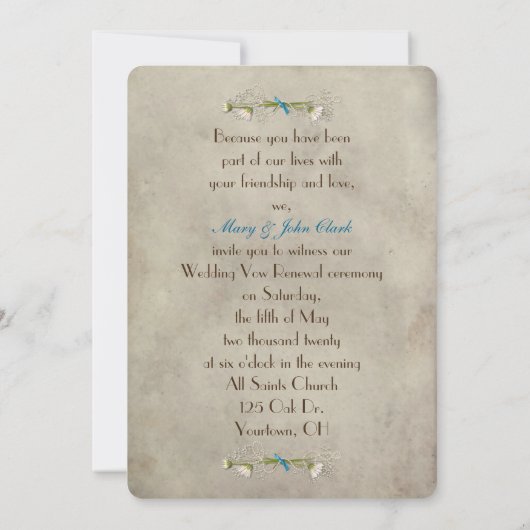 Because you have been
part of our lives with
your friendship and love,
we,
Mary & John Clark
invite you to witness our
Wedding Vow Renewal ceremony
on Saturday,
the fifth of May
two thousand twenty
at six o'clock in the evening
All Saints Church
125 Oak Dr.
Yourtown, OH